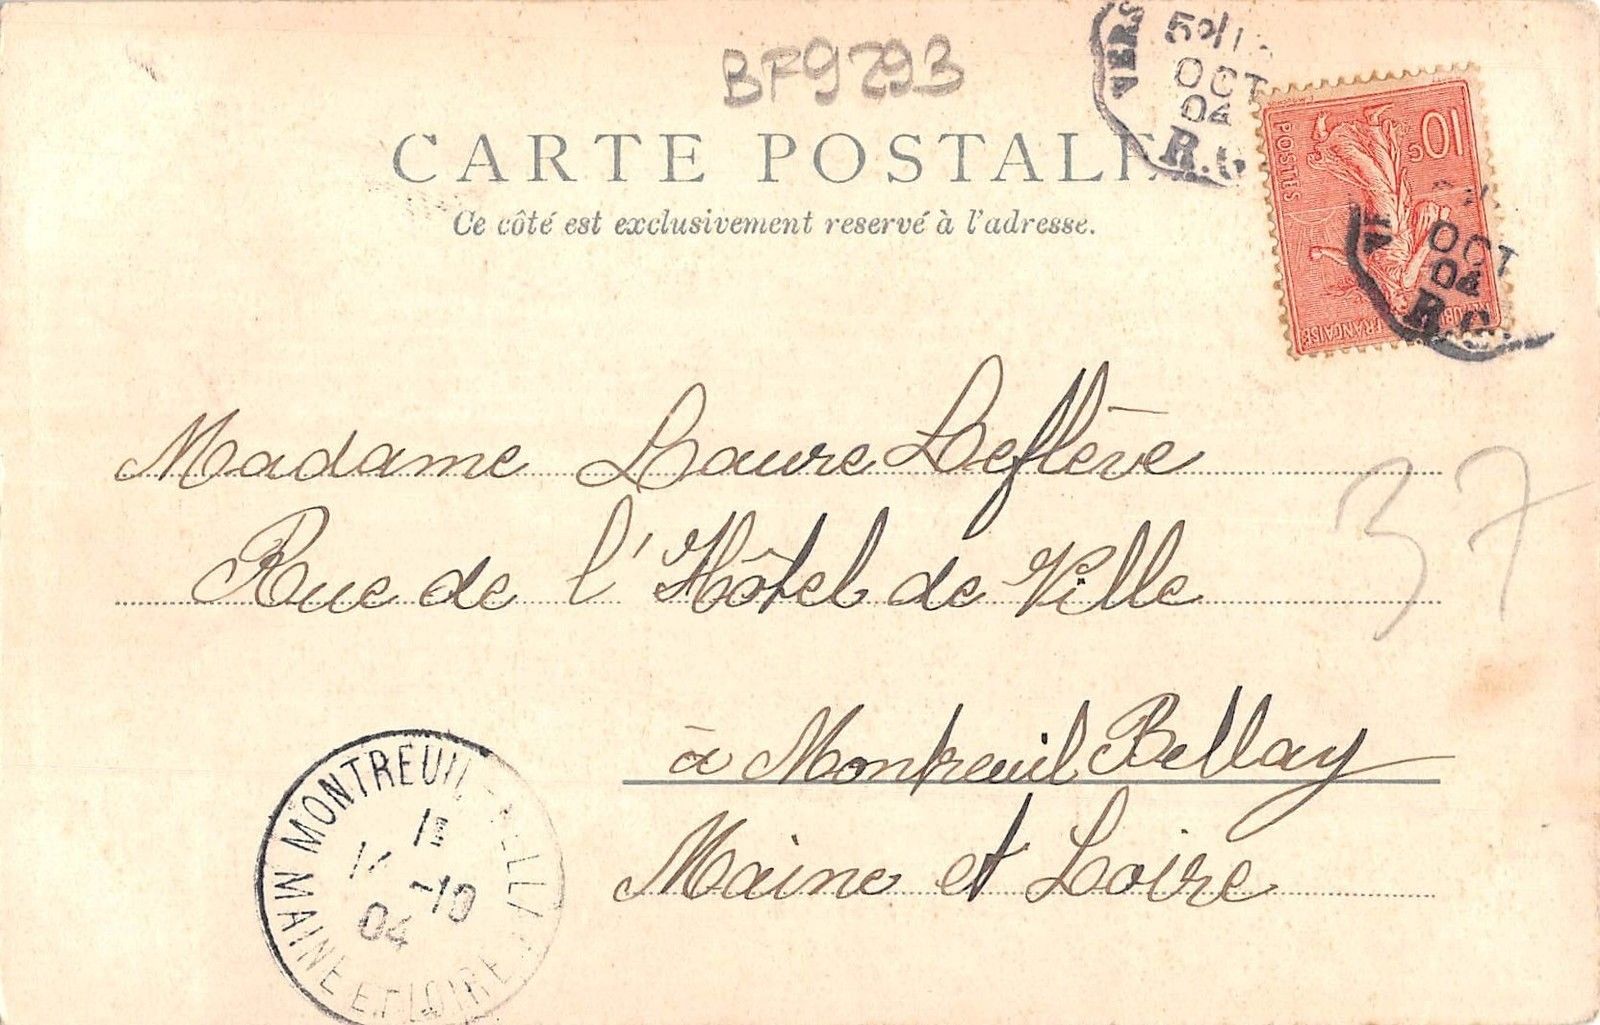 BF9293
CARTE POSTALE
Ce côté est exclusivement reservé à l'adresse.
VERS
OCT
04
R.C.
10
POSTES
FRANÇAISE
OCT
04
R.C.
Madame Laure Leflève
Rue de l'Hôtel de Ville
37
à Montreuil Bellay
Maine et Loire
MONTREUIL-BELLAY
11
-10
04
MAINE ET LOIRE